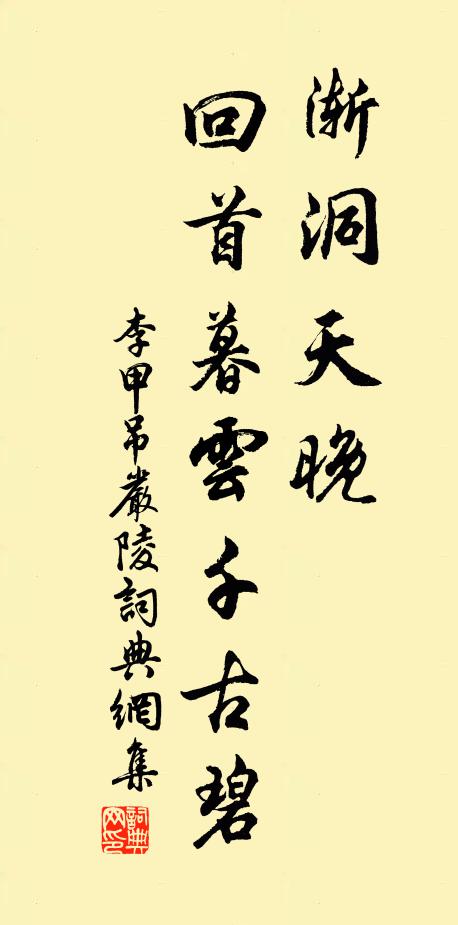 渐洞天晚
回首暮雲千古碧
李甲吊嚴陵詞典網集
詞典网印